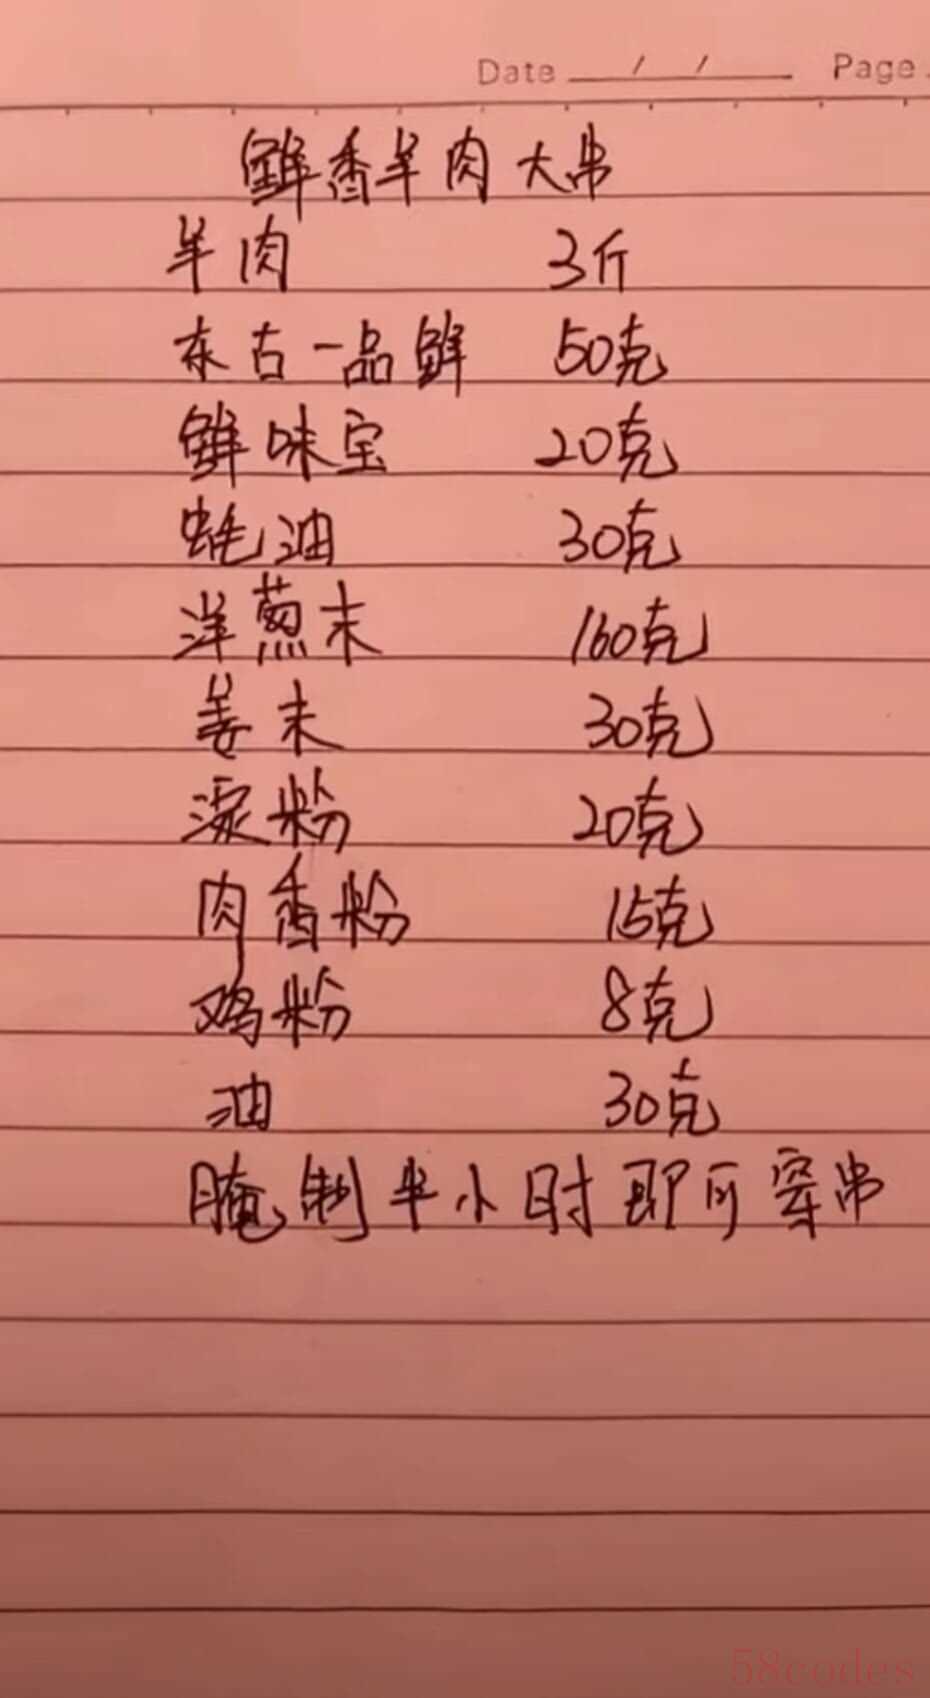 Date / / Page
鲜香羊肉大串
羊肉 3斤
东古一品鲜 50克
鲜味宝 20克
蚝油 30克
洋葱末 160克
姜末 30克
淀粉 20克
肉香粉 15克
鸡粉 8克
油 30克
腌制半小时即可穿串
58codes